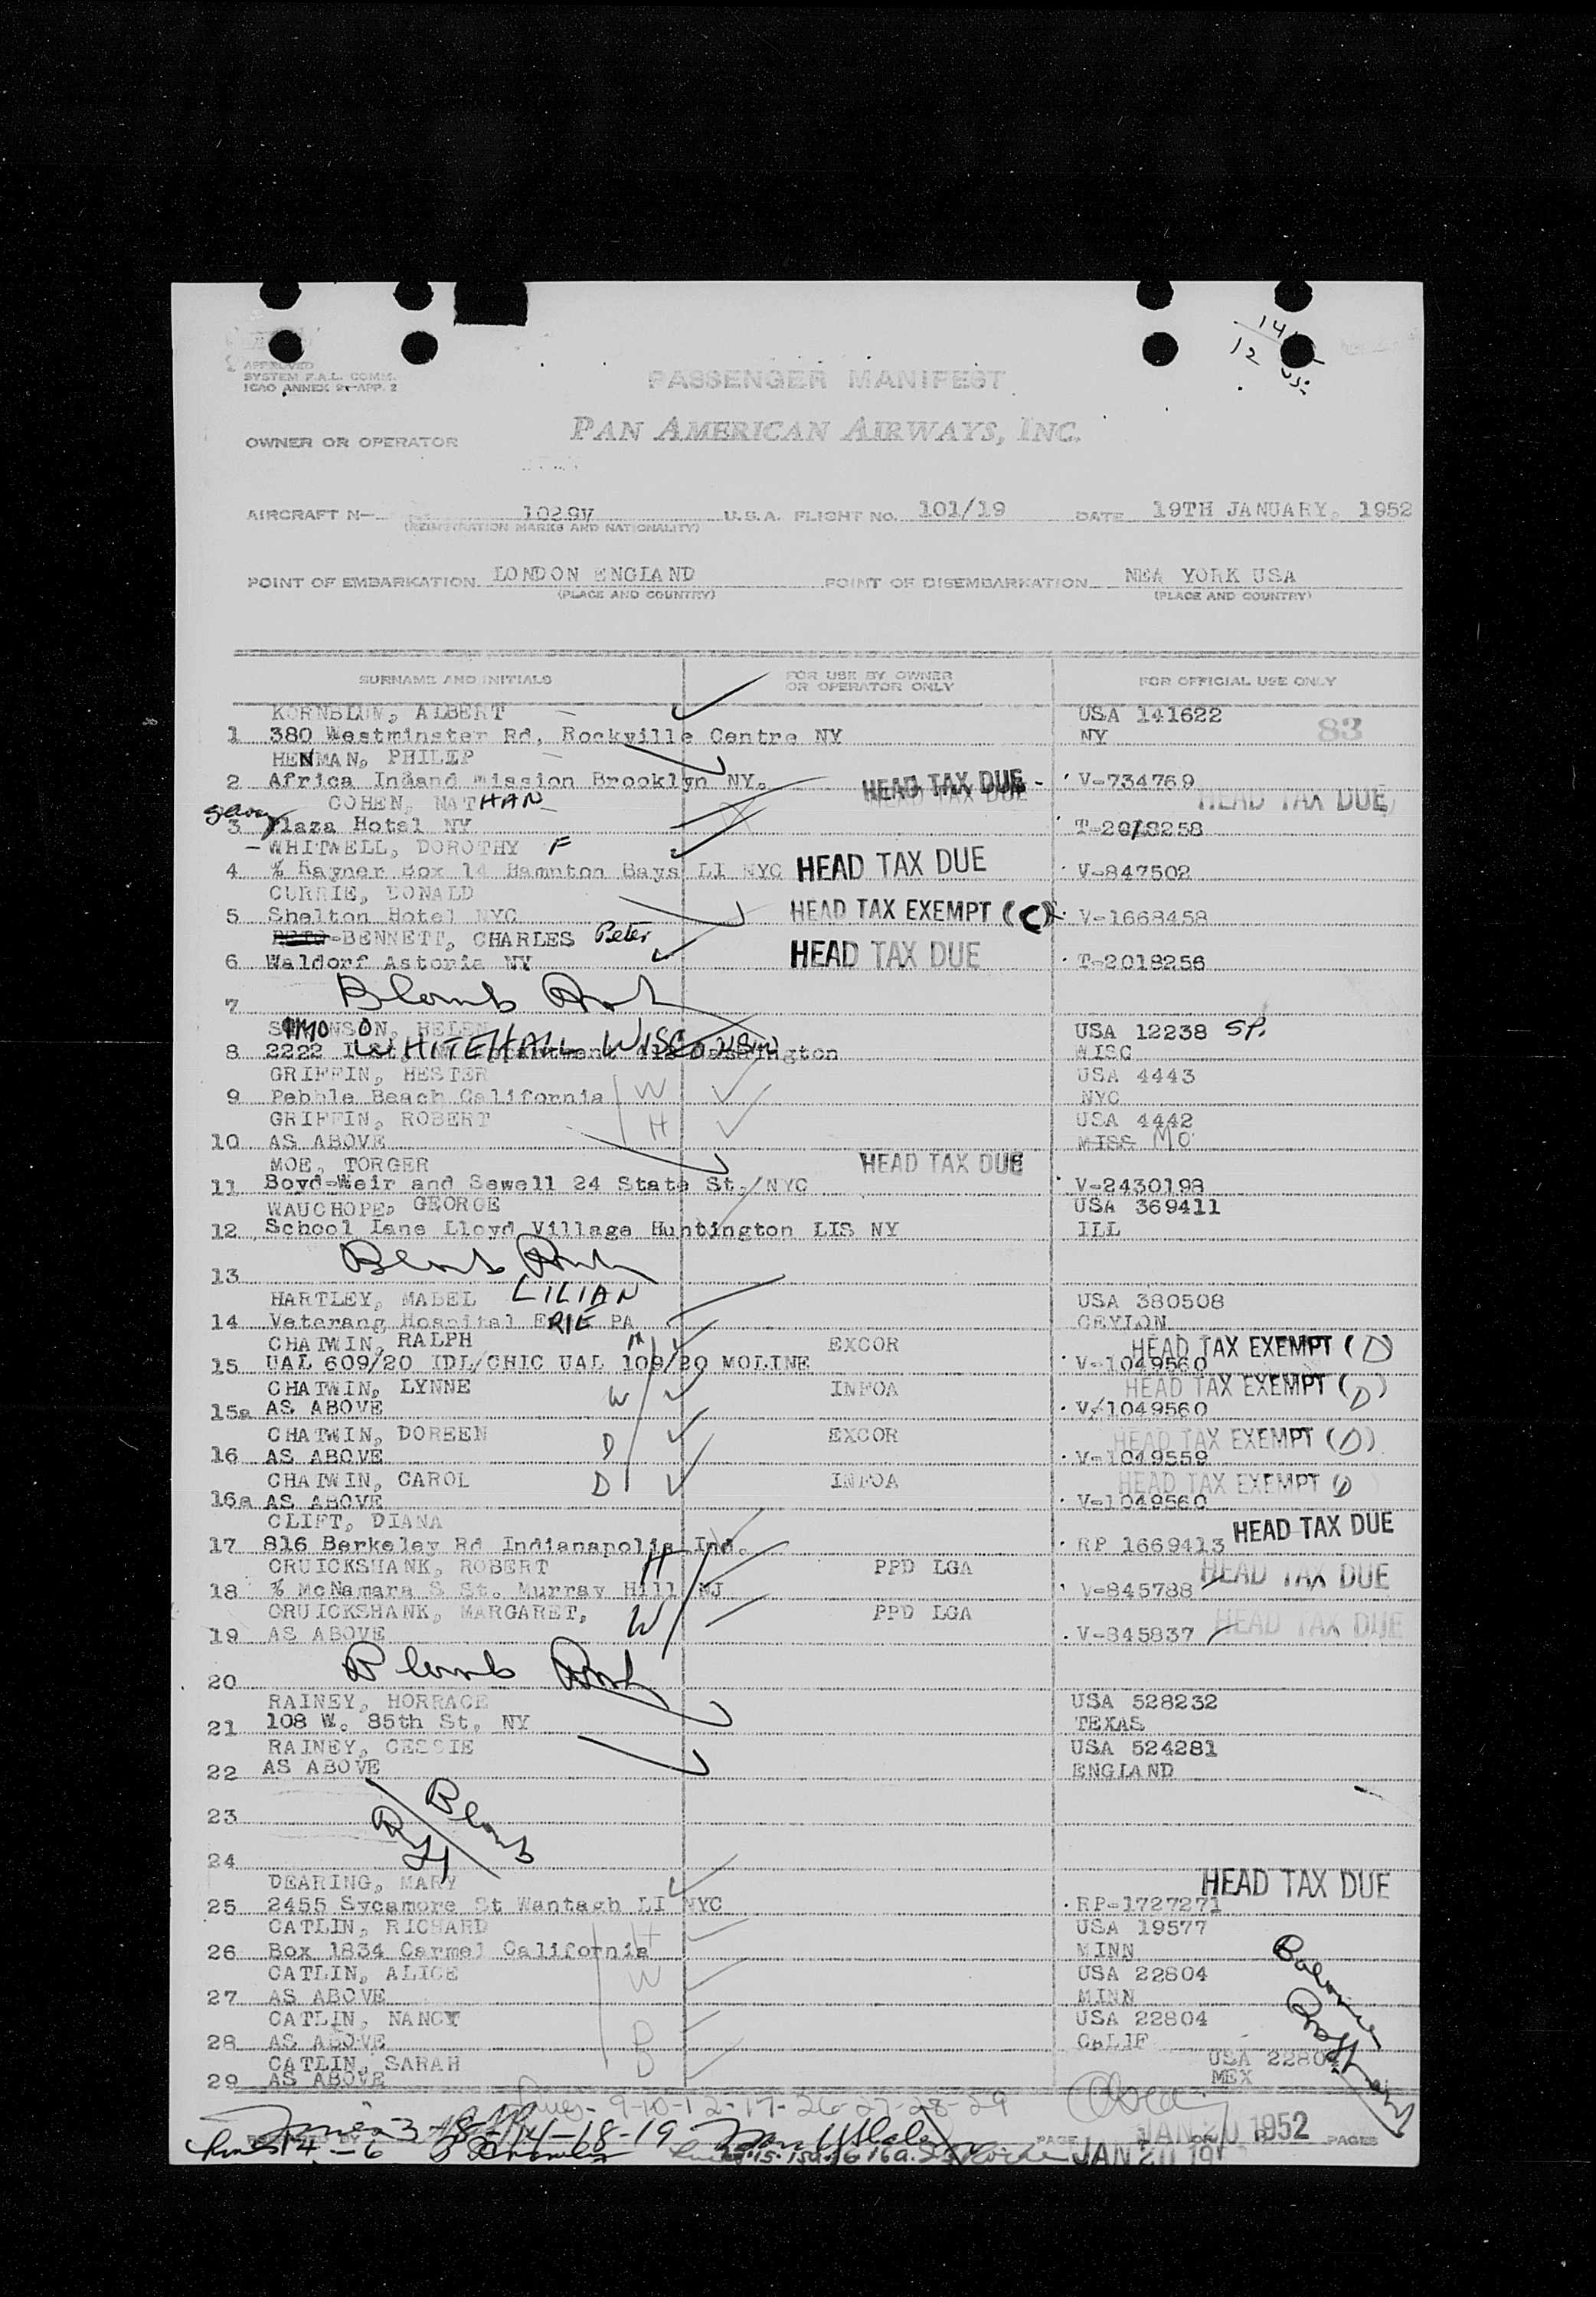 APPROVED
SYSTEM F.A.L. COMM.
ICAO ANNEX 9-APP. 2
14
12
PASSENGER MANIFEST
OWNER OR OPERATOR PAN AMERICAN AIRWAYS, INC.
AIRCRAFT N- 1029V U.S.A. FLIGHT NO. 101/19 DATE 19TH JANUARY, 1952
(REGISTRATION MARKS AND NATIONALITY)
POINT OF EMBARKATION LONDON ENGLAND POINT OF DISEMBARKATION NEW YORK USA
(PLACE AND COUNTRY) (PLACE AND COUNTRY)
SURNAME AND INITIALS FOR USE BY OWNER OR OPERATOR ONLY FOR OFFICIAL USE ONLY
KORNBLUM, ALBERT USA 141622
1 380 Westminster Rd, Rockville Centre NY NY 83
HENMAN, PHILIP
2 Africa Inland mission Brooklyn NY. HEAD TAX DUE V-734769
COHEN, NATHAN HEAD TAX DUE
3 Plaza Hotel NY T-2018258
WHITWELL, DOROTHY F
4 % Rayner Box 14 Hampton Bays LI NYC HEAD TAX DUE V-847502
CURRIE, DONALD
5 Shelton Hotel NYC HEAD TAX EXEMPT (C) V-1668458
-BENNETT, CHARLES Peter
6 Waldorf Astoria NY HEAD TAX DUE T-2018256
7 Blank
HELEN USA 12238 SP.
8 2222 WHITEHALL WISCONSIN Washington WISC
GRIFFIN, HESTER USA 4443
9 Pebble Beach California W NYC
GRIFFIN, ROBERT USA 4442
10 AS ABOVE H MISS MO
MOE, TORGER HEAD TAX DUE
11 Boyd-Weir and Sewell 24 State St, NYC V-2430198
WAUCHOPE, GEORGE USA 369411
12 School Lane Lloyd Village Huntington LIS NY ILL
13 Blank
HARTLEY, MABEL LILIAN USA 380508
14 Veterans Hospital ERIE PA CEYLON
CHATWIN, RALPH EXCOR HEAD TAX EXEMPT (D)
15 UAL 609/20 IDL/CHIC UAL 109/20 MOLINE V-1049560
CHATWIN, LYNNE W INFOA HEAD TAX EXEMPT (D)
15a AS ABOVE V-1049560
CHATWIN, DOREEN D EXCOR HEAD TAX EXEMPT (D)
16 AS ABOVE V-1049559
CHATWIN, CAROL D INFOA HEAD TAX EXEMPT D
16a AS ABOVE V-1049560
CLIFT, DIANA HEAD TAX DUE
17 816 Berkeley Rd Indianapolis Ind. RP 1669413
CRUICKSHANK, ROBERT H PPD LGA HEAD TAX DUE
18 % McNamara S St. Murray Hill NJ V-845788
CRUICKSHANK, MARGARET, W PPD LGA HEAD TAX DUE
19 AS ABOVE V-845837
20 Blank
RAINEY, HORRACE USA 528232
21 108 W. 85th St, NY TEXAS
RAINEY, CESSIE USA 524281
22 AS ABOVE ENGLAND
23 Blank
24
DEARING, MARY HEAD TAX DUE
25 2455 Sycamore St Wantagh LI NYC RP-1727271
CATLIN, RICHARD H USA 19577
26 Box 1834 Carmel California MINN
CATLIN, ALICE W USA 22804
27 AS ABOVE MINN
CATLIN, NANCY USA 22804
28 AS ABOVE D CALIF
CATLIN, SARAH D USA 22804
29 AS ABOVE MEX
9-10-12-17-26-27-28-29
14-18-19 JAN 20 1952
4-6 15-15a-16-16a PAGE OF PAGES
JAN 20 19